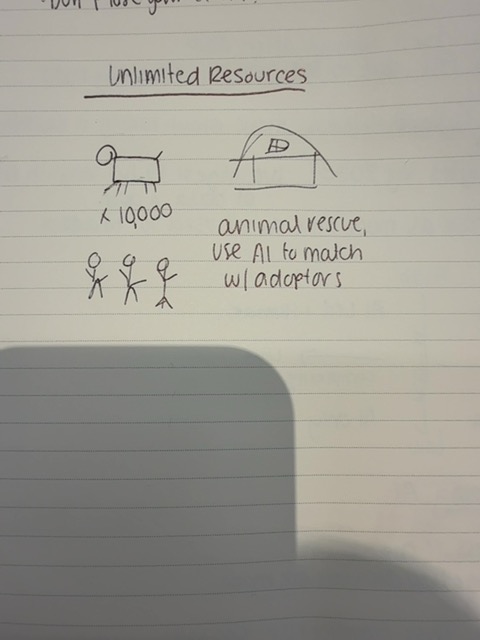 Unlimited Resources
x 10,000
animal rescue,
use AI to match
w/ adoptors